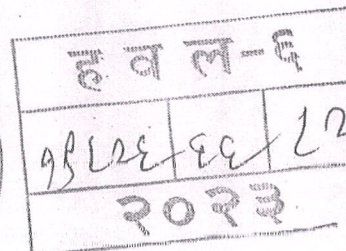 हवल-६
१५६२६ ६६ ८२
२०२३